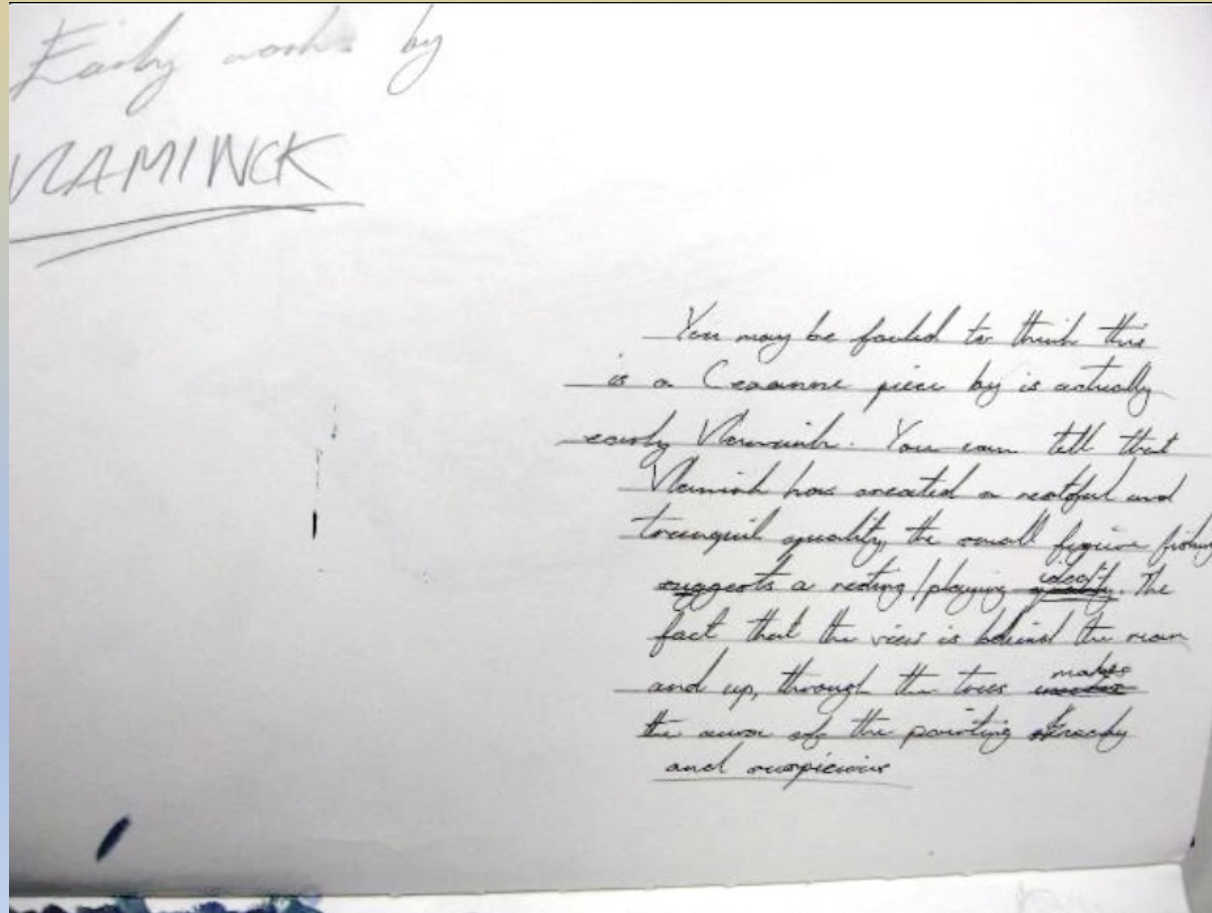 Early work by
VLAMINCK
You may be fouled to think this
is a Cezannne piece by is actually
early Vlaminh. You can tell that
Vlaminh has created a restful and
tranquil quality, the small figure fishing
suggests a resting/playing ideolify. The
fact that the view is behind the man
and up, through the trees makes
the aura of the painting streachy
and suspicious